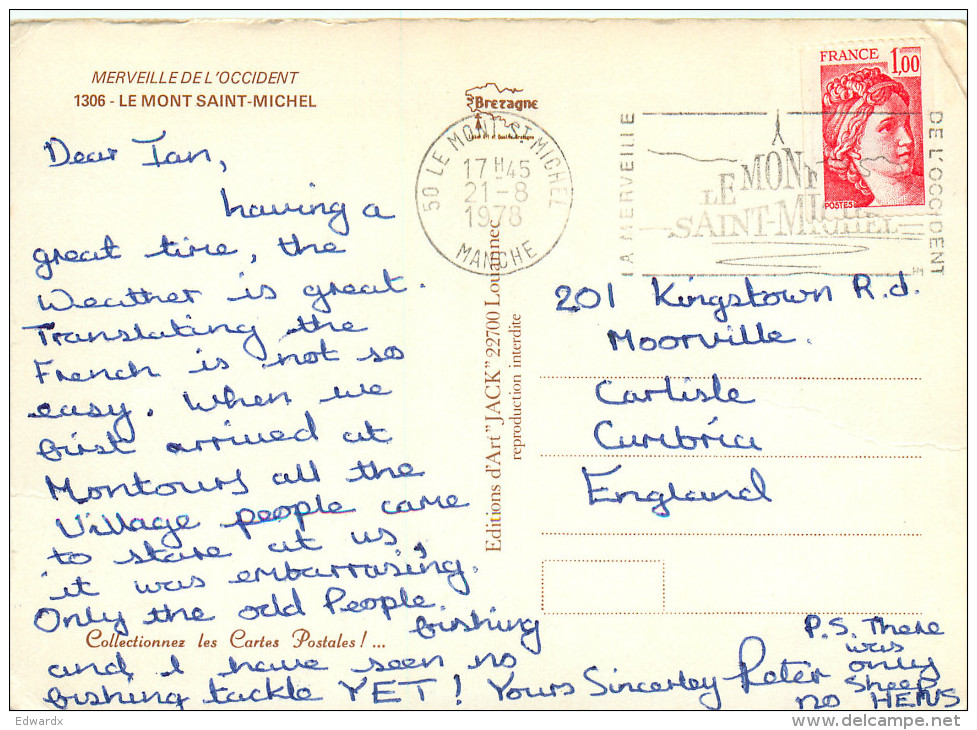 MERVEILLE DE L'OCCIDENT
1306 - LE MONT SAINT-MICHEL
Dear Ian,
having a
great time, the
Weather is great.
Translating the
French is not so
easy. When we
first arrived at
Montours all the
Village people came
to stare at us,
it was embarrasing.
Only the odd People.
fishing
Collectionnez les Cartes Postales! ...
and I have seen no
fishing tackle YET! Yours Sincerley Peter
P.S. There
was
only
Sheep
no HENS
Bretagne
50 LE MONT-ST-MICHEL
17H45
21-8
1978
MANCHE
Editions d'Art "JACK" 22700 Louannec
reproduction interdite
LA MERVEILLE
LE MONT
SAINT-MICHEL
DE L'OCCIDENT
FRANCE 1,00
POSTES
201 Kingstown Rd.
Moorville.
Carlisle
Cumbria
England
Edwardx
www.delcampe.net